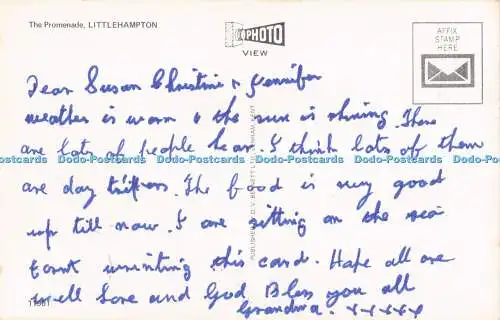 The Promenade, LITTLEHAMPTON
PHOTO
VIEW
AFFIX
STAMP
HERE
Dear Susan Christine & Jennifer
weather is warm & the sun is shining. There
are lots of people hear. I think lots off them
Dodo-Postcards Dodo-Postcards Dodo-Postcards Dodo-Postcards Dodo-Postcards Dodo-Postcards
are day trippers. The food is very good
up till now. I are sitting on the sea
front writting this card. Hope all are
well Love and God Bless you all
Grandma. x x x x x